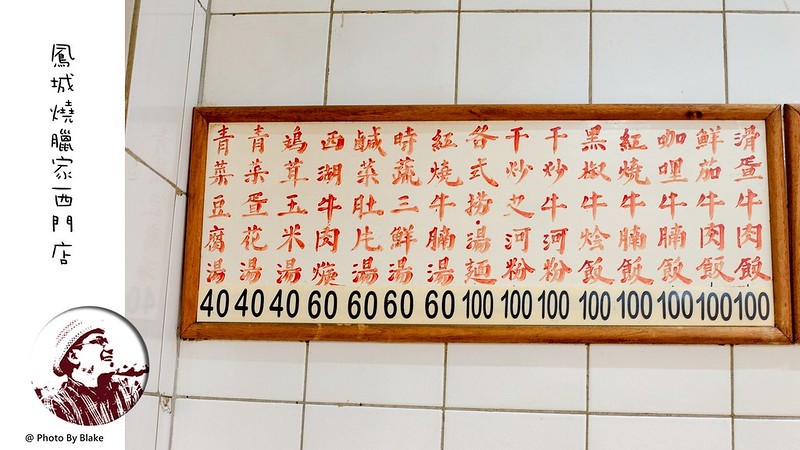 鳳城燒臘家西門店
滑蛋牛肉飯 100
鮮茄牛肉飯 100
咖哩牛腩飯 100
紅燒牛腩飯 100
黑椒牛燴飯 100
干炒牛河粉 100
干炒叉河粉 100
各式撈湯麵 100
紅燒牛腩湯 60
時蔬三鮮湯 60
鹹菜肚片湯 60
西湖牛肉羹 60
鷄茸玉米湯 40
青菜蛋花湯 40
青菜豆腐湯 40
@ Photo By Blake